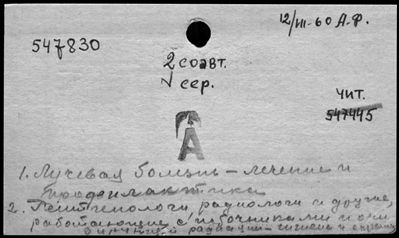 12/III-60 А.Ф.
547830
2 соавт.
√ сер.
чит.
547445
А
1. Лучевая болезнь - лечение и
профилактика
2. Рентгенологи радиологи и другие,
работающие с источниками иони
зирующей радиации - гигиена и охрана